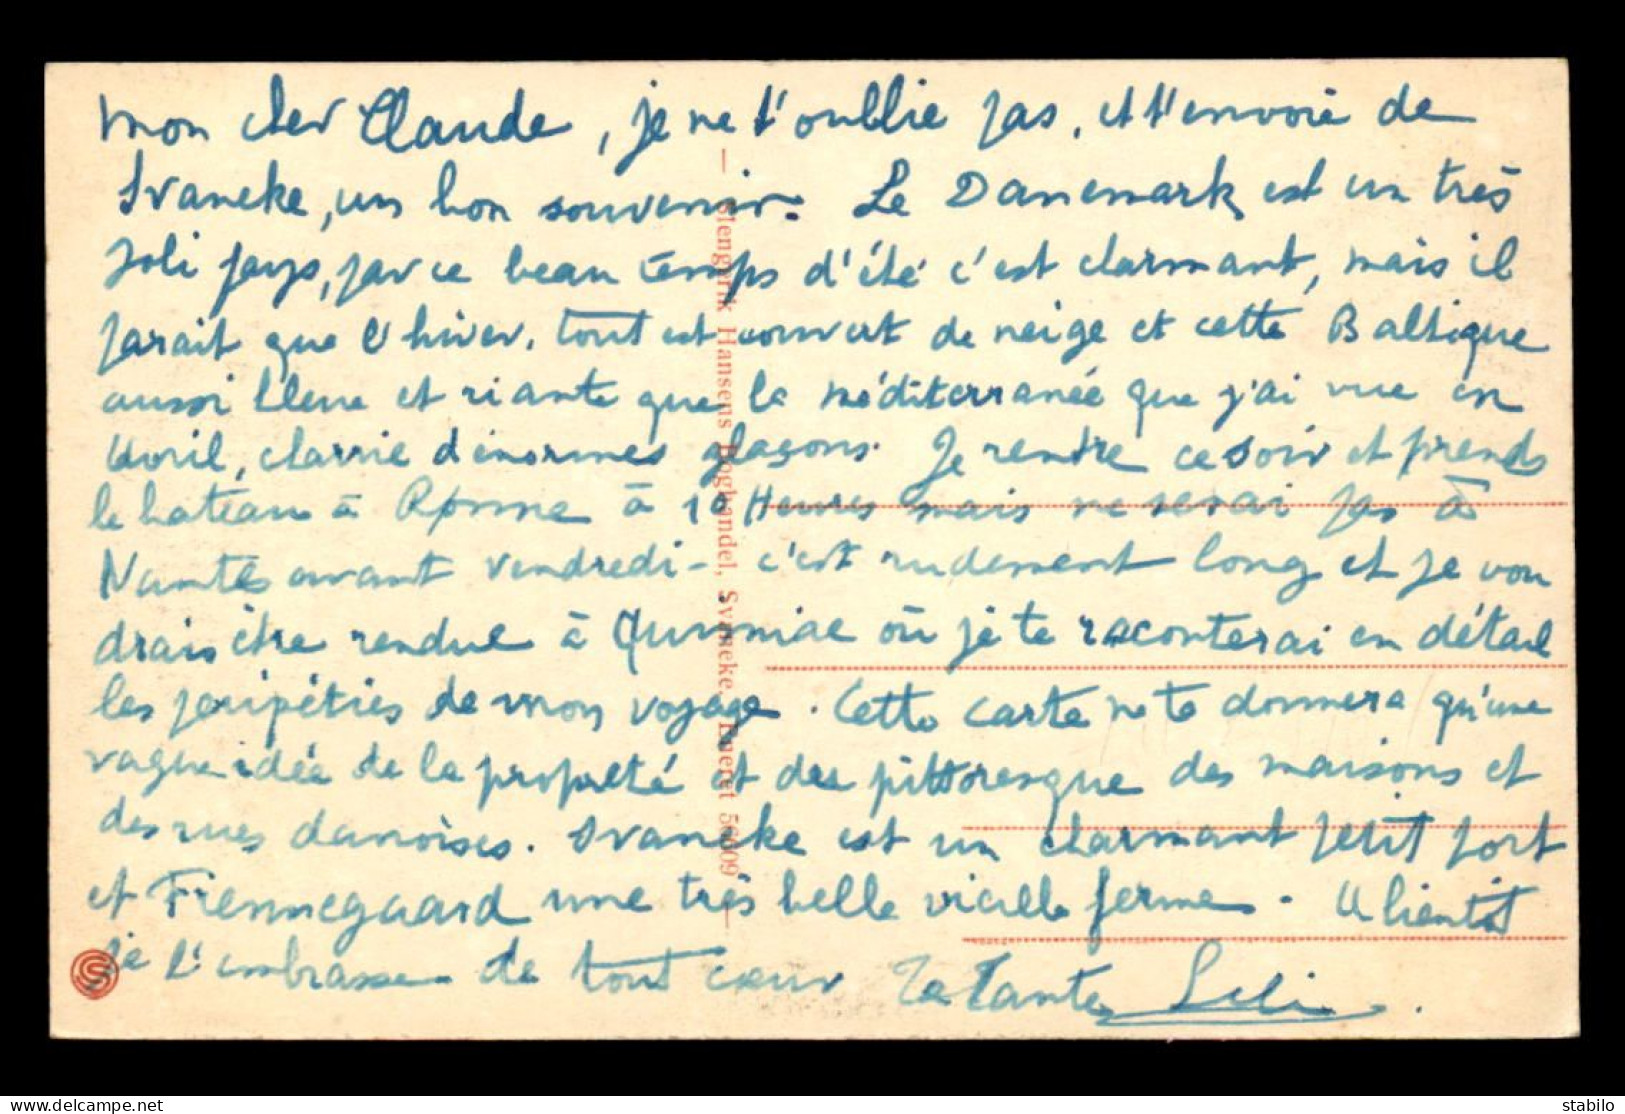 mon cher Claude, je ne t'oublie pas, et t'envoie de
Svaneke, un bon souvenir. Le Danemark est un très
joli pays, par ce beau temps d'été c'est charmant, mais il
parait que l'hiver, tout est couvert de neige et cette Baltique
aussi bleue et riante que la méditerranée que j'ai vue en
Avril, charrie d'énormes glaçons. Je rentre ce soir et prends
le bateau à Rønne à 10 Heures mais ne serai pas à
Nantes avant vendredi - c'est rudement long et je vou
drais être rendue à Quimiac où je te raconterai en détail
les péripéties de mon voyage. Cette carte ne te donnera qu'une
vague idée de la propreté et du pittoresque des maisons et
des rues danoises. Svaneke est un charmant petit port
et Fiennegaard une très belle vieille ferme - A bientôt
je t'embrasse de tout cœur Ta Tante Lili.
Stengerik Hansens Boghandel, Svaneke. Eneret 56609
S
stabilo